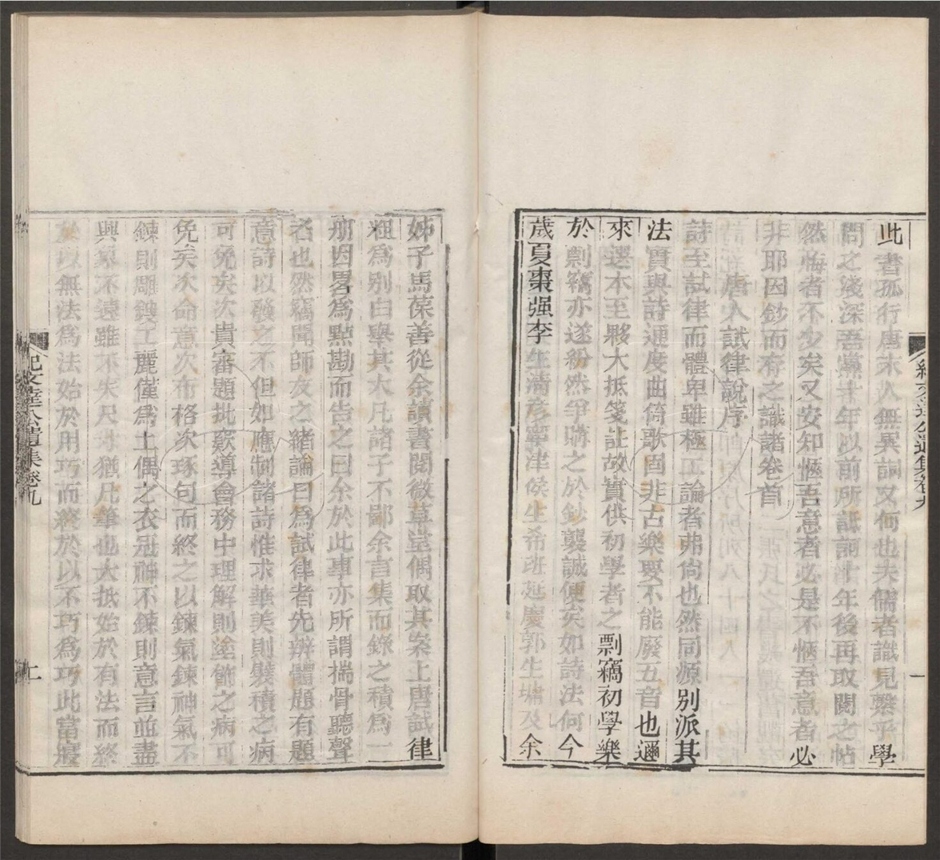 此書孤行唐末人無異詞又何也夫儒者識見繫乎學
問之淺深吾黨十年以前所詆訶十年後再取閱之帖
然悔者不少矣又安知愜吾意者必是不愜吾意者必
非耶因鈔而存之識諸卷首
唐人試律說序
詩至試律而體卑雖極工論者弗尚也然同源別派其
法實與詩通度曲倚歌固非古樂要不能廢五音也邇
來選本至夥大抵箋註故實供初學者之剽竊初學樂
於剽竊亦遂紛然爭購之於鈔襲誠便矣如詩法何今
歲夏棗强李生清彥寧津侯生希班延慶郭生墉及余
姊子馬葆善從余讀書閱微草堂偶取其案上唐試律
粗爲別白舉其大凡諸子不鄙余言集而錄之積爲一
册因畧爲點勘而告之曰余於此事亦所謂揣骨聽聲
者也然竊聞師友之緒論曰爲試律者先辨體題有題
意詩以發之不但如應制諸詩惟求華美則襞積之病
可免矣次貴審題批窾導會務中理解則塗飾之病可
免矣次命意次布格次琢句而終之以鍊氣鍊神氣不
鍊則雕鏤工麗僅爲土偶之衣冠神不鍊則意言並盡
興象不遠雖不失尺寸猶凡筆也大抵始於有法而終
於以無法爲法始於用巧而終於以不巧爲巧此當寢
紀文達公遺集卷九